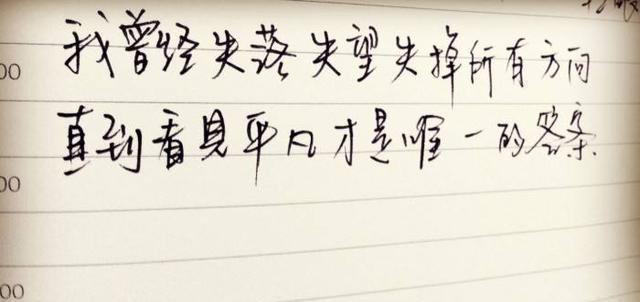 00
我曾经失落失望失掉所有方向
直到看见平凡才是唯一的答案
00
00